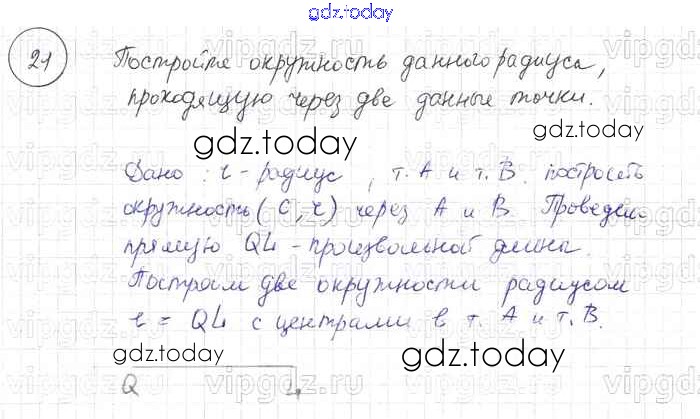 gdz.today
21
Постройте окружность данного радиуса,
проходящую через две данные точки.
gdz.today
gdz.today
Дано: r - радиус, т. A и т. B. построить
окружность (C, r) через A и B. Проведём
прямую QL - произвольной длины.
Построим две окружности радиусом
r = QL с центрами в т. A и т. B.
gdz.today
gdz.today
Q L
vipgdz.ru